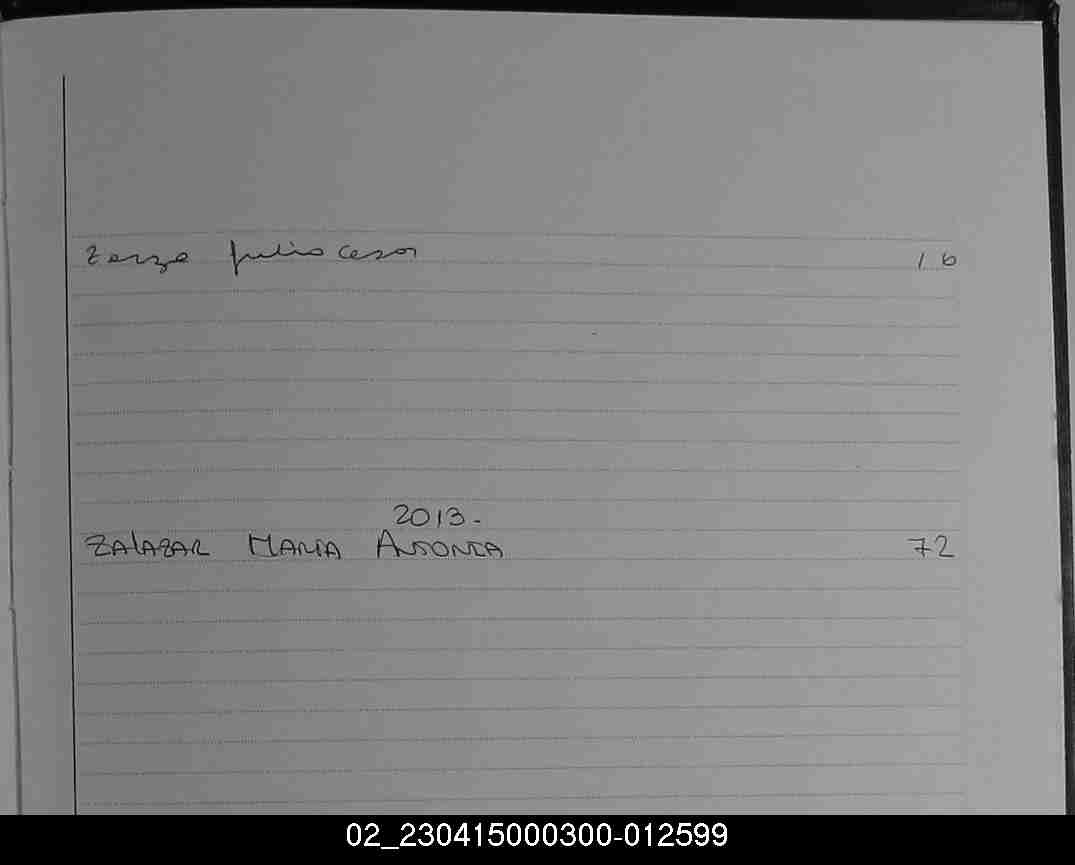 Zarza Julio Cesar 16
2013.-
ZALAZAR MARIA ANTONIA 72
02_230415000300-012599